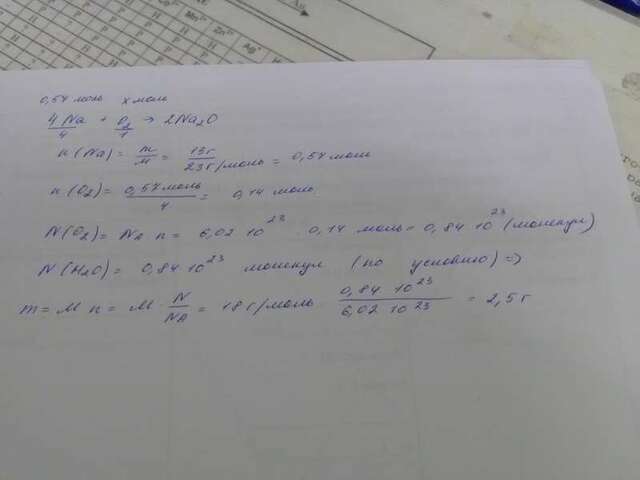 Cu²⁺ Mn²⁺ Zn²⁺ Ag⁺
0,57 моль x моль
4Na/4 + O₂/1 → 2Na₂O
n(Na) = m/M = 13г/23г/моль = 0,57 моль
n(O₂) = 0,57 моль/4 = 0,14 моль
N(O₂) = Na n = 6,02 10²³ · 0,14 моль = 0,84 10²³ (молекул)
N(H₂O) = 0,84 10²³ молекул (по условию) =>
m = M n = M · N/NA = 18 г/моль · 0,84 10²³/6,02 10²³ = 2,5 г